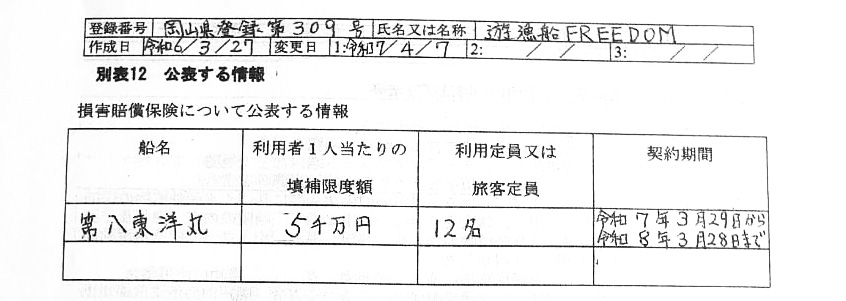 登録番号 岡山県登録第309号 氏名又は名称 遊漁船FREEDOM
作成日 令和6/3/27 変更日 1:令和7/4/7 2: / / 3: / /
別表12 公表する情報
損害賠償保険について公表する情報
船名 利用者1人当たりの填補限度額 利用定員又は旅客定員 契約期間
第八東洋丸 5千万円 12名 令和7年3月29日から
令和8年3月28日まで